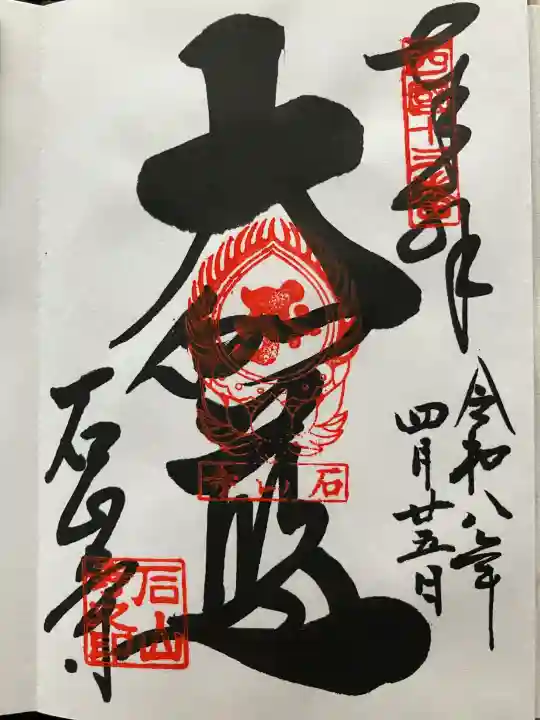 奉拝
西国十三番
令和八年
四月廿五日
大伽藍
石山寺
石山寺
石山
寺之印